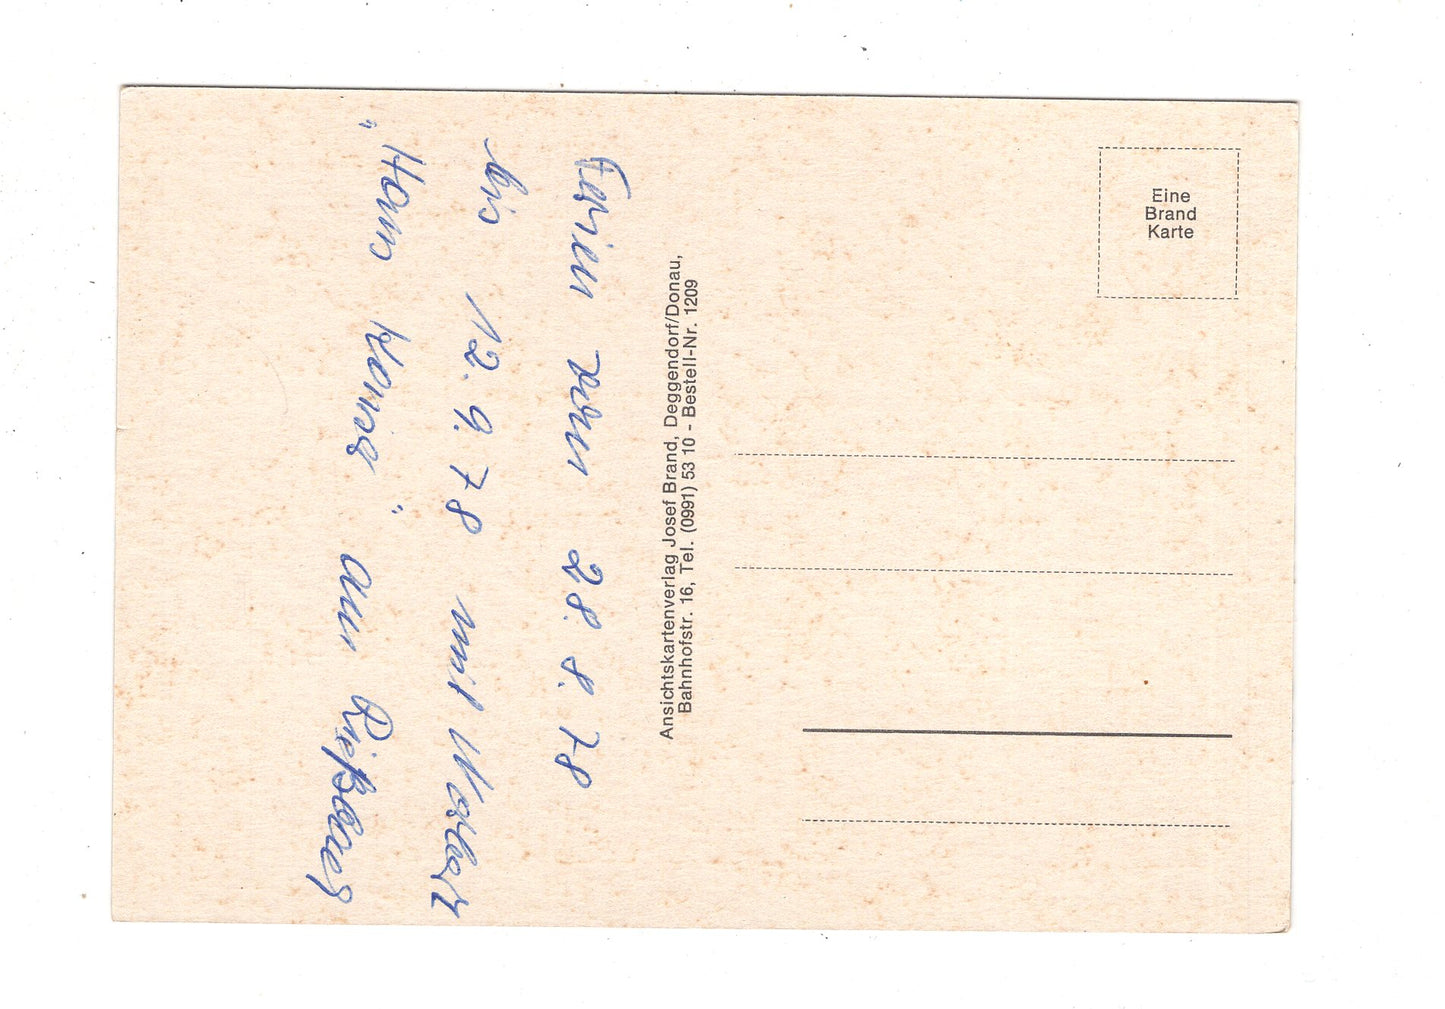 Ferien vom 28.8.78
bis 12.9.78 mit Norbert
"Haus Xenia" am Rießberg
Ansichtskartenverlag Josef Brand, Deggendorf/Donau,
Bahnhofstr. 16, Tel. (0991) 53 10 - Bestell-Nr. 1209
Eine
Brand
Karte